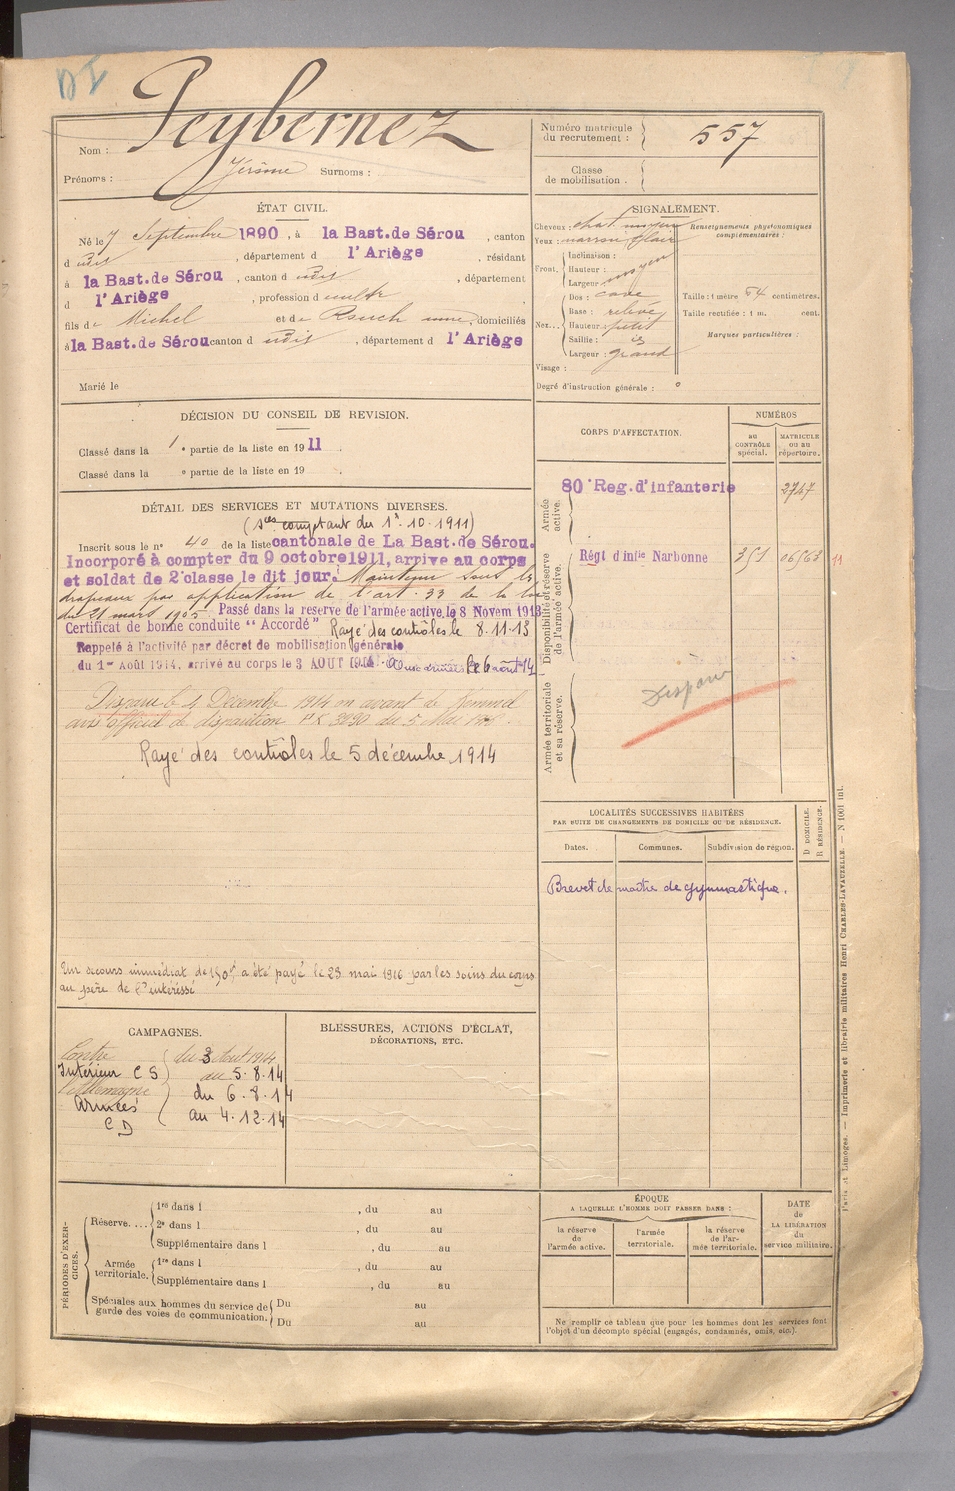 DI
Nom : Peybernez
Prénoms : Jérôme Surnoms :
Numéro matricule du recrutement : 557
Classe de mobilisation .
ÉTAT CIVIL.
Né le 7 Septembre 1890, à la Bast. de Sérou, canton
d udit, département d l'Ariège, résidant
à la Bast. de Sérou, canton d udit, département
d l'Ariège, profession d cultr
fils de Michel et de Rouch , domiciliés
à la Bast. de Sérou canton d udit, département d l'Ariège
Marié le
SIGNALEMENT.
Cheveux : chat. moyen
Yeux : marron clair
Front. Inclinaison :
Hauteur :
Largeur : moyen
Nez... Dos : cave
Base : relevée
Hauteur : petit
Saillie :
Largeur : grand
Visage :
Renseignements physionomiques complémentaires :
Taille : 1 mètre 64 centimètres.
Taille rectifiée : 1 m. cent.
Marques particulières :
Degré d'instruction générale :
DÉCISION DU CONSEIL DE REVISION.
Classé dans la 1e partie de la liste en 1911.
Classé dans la e partie de la liste en 19 .
CORPS D'AFFECTATION.
NUMÉROS
AU CONTRÔLE spécial.
MATRICULE ou au répertoire.
Armée active.
80e Reg. d'infanterie 2747
Disponibilité et réserve de l'armée active.
Régt d'infie Narbonne 351 06563 11
Armée territoriale et sa réserve.
Disparu
DÉTAIL DES SERVICES ET MUTATIONS DIVERSES.
(Sces comptant du 1r-10-1911)
Inscrit sous le no 40 de la liste cantonale de La Bast. de Sérou.
Incorporé à compter du 9 octobre 1911, arrive au corps
et soldat de 2e classe le dit jour. Maintenu sous les
drapeaux par application de l'art. 33 de la loi
du 21 mars 1905 Passé dans la reserve de l'armée active, le 8 Novem 1913
Certificat de bonne conduite " Accordé " Rayé des contrôles le 8.11.13
Rappelé à l'activité par décret de mobilisation générale
du 1er Août 1914, arrivé au corps le 3 AOUT 1914. Aux armées le 6 août 14
Disparu le 4 Décembre 1914 en avant de Kemmel
avis officiel de disparition 3990 du 5 Mai
Rayé des contrôles le 5 décembre 1914
Un secours immédiat de 150f a été payé le 23 mai 1916 par les soins du corps
au père de l'intéressé
LOCALITÉS SUCCESSIVES HABITÉES
PAR SUITE DE CHANGEMENTS DE DOMICILE OU DE RÉSIDENCE.
D DOMICILE.
R RÉSIDENCE.
Dates. Communes. Subdivision de région.
Brevet de maître de gymnastique.
CAMPAGNES.
Contre du 3 Août 1914
Intérieur C S au 5.8.14
l'Allemagne du 6.8.14
Armées au 4.12.14
C D
BLESSURES, ACTIONS D'ÉCLAT,
DÉCORATIONS, ETC.
PÉRIODES D'EXERCICES.
Réserve.... 1re dans l , du au
2e dans l , du au
Supplémentaire dans l , du au
Armée territoriale. 1re dans l , du au
Supplémentaire dans l , du au
Spéciales aux hommes du service de garde des voies de communication. Du au
Du au
ÉPOQUE
A LAQUELLE L'HOMME DOIT PASSER DANS :
la réserve de l'armée active.
l'armée territoriale.
la réserve de l'armée territoriale.
DATE de LA LIBÉRATION du service militaire.
Ne remplir ce tableau que pour les hommes dont les services font
l'objet d'un décompte spécial (engagés, condamnés, omis, etc.).
Paris et Limoges. — Imprimerie et librairie militaires Henri CHARLES-LAVAUZELLE. — N 1001 int.